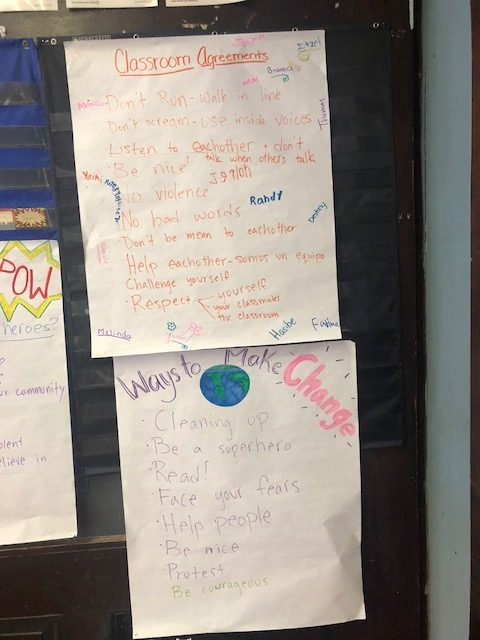 Classroom Agreements
Briana
Don't Run - walk in line
Don't scream - use inside voices
Thomas
Listen to eachother + don't
talk when others talk
Be nice!
No violence
Randy
No bad words
Destiny
Don't be mean to eachother
Help eachother - somos un equipo
Challenge yourself
Respect yourself
your classmates
the classroom
Melinda
Fatima
POW
heroes?
ur community
olent
elieve in
Ways to Make Change
Cleaning up
Be a superhero
Read!
Face your fears
Help people
Be nice
Protest
Be courageous